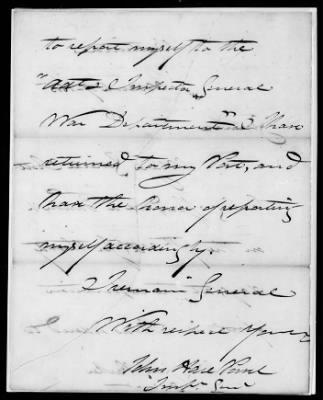 to report myself to the
"Act & Inspector General
War Department" I have
returned to my Post, and
have the honor of reporting
myself accordingly.
I remain General
With respect Yours
John Hare Powel
Insp. Gen